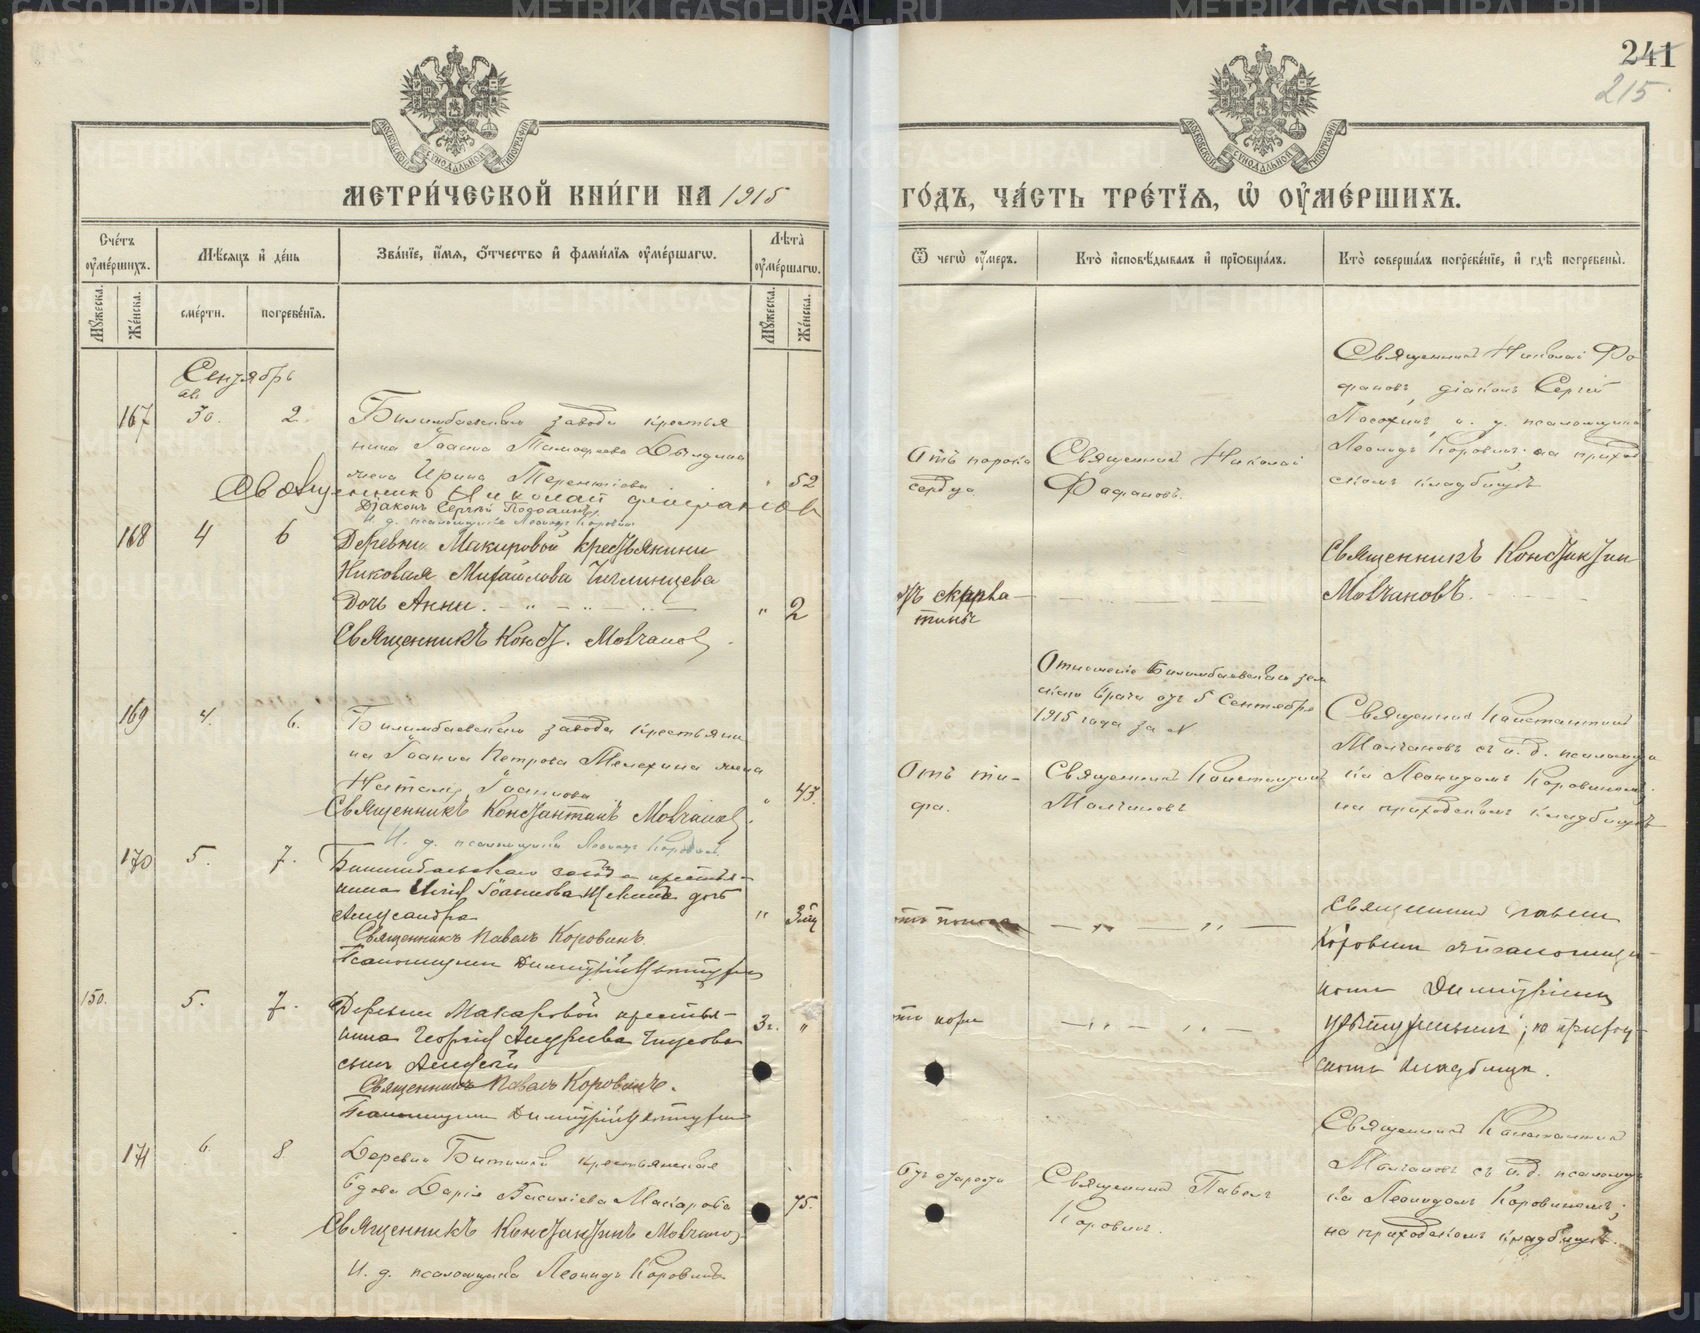 241
215
МЕТРИ́ЧЕСКОЙ КНИ́ГИ НА 1915
ГО́ДЪ, ЧА́СТЬ ТРЕ́ТЇѦ, Ѽ ОУ҆МЕ́РШИХЪ.
Сче́тъ оу҆ме́ршихъ.
Мѣ́сяцъ и҆ де́нь
Зва́нїе, и҆́мя, ѻ҆́тчество и҆ фами́лїя оу҆ме́ршагѡ.
Лѣ́та оу҆ме́ршагѡ.
Ѿ чегѡ̀ оу҆́меръ.
Кто̀ и҆сповѣ́дывалъ и҆ прїѡбща́лъ.
Кто̀ соверша́лъ погребе́нїе, и҆ гдѣ̀ погребены̀.
Му́жеска.
Же́нска.
сме́рти.
погребе́нїя.
Му́жеска.
Же́нска.
Сентябрь
ав.
167 30. 2.
Билимбаевскаго завода крестья
нина Іоанна Тимофеева
жена Ирина Терентіева " 52
Священникъ Николай Фафановъ
Діаконъ Сергѣй
И. д. псаломщика Леонидъ Коровинъ
Отъ порока
сердца
Священникъ Николай
Фафановъ.
Священникъ Николай Фа
фановъ, діаконъ Сергій
и. д. псаломщика
Леонидъ Коровинъ на приход
скомъ кладбищѣ
168 4 6
Деревни Макаровой крестьянина
Николая Михайлова
Дочь Анна. " 2
Священникъ Конст. Молчановъ.
отъ скарла
тины
Священникъ Константин
Молчановъ.
169 4. 6.
Билимбаевскаго завода крестьяни
на Іоанна Петрова Мелехина жена
Наталія Іоаннова " 43.
Священникъ Константинъ Молчановъ.
И. д. псаломщика Леонидъ Коровинъ.
Отъ ти-
фа.
Отношеніе Билимбаевскаго зем
скаго врача отъ 5 Сентября
1915 года за №
Священникъ Константинъ
Молчановъ
Священникъ Константинъ
Молчановъ съ и. д. псаломщи
ка Леонидомъ Коровинымъ;
на приходскомъ кладбищѣ
170 5. 7.
Билимбаевскаго завода крестья-
нина Іоаннова дочь
Александра " 3 м
Священникъ Павелъ Коровинъ.
Псаломщикъ Димитрій
отъ поноса
Священникъ Павелъ
Коровинъ псаломщи-
комъ Димитріемъ
приход
скомъ кладбищѣ.
150. 5. 7.
Деревни Макаровой крестья-
нина Георгія Андреева
сынъ Алексѣй 3 г. "
Священникъ Павелъ Коровинъ.
Псаломщикъ Димитрій
отъ кори
171 6. 8
Деревни Битимки крестьянская
вдова Дарія Василіева Макарова 75.
Священникъ Константинъ Молчановъ
И. д. псаломщика Леонидъ Коровинъ
отъ старости
Священникъ Павелъ
Коровинъ.
Священникъ Константинъ
Молчановъ съ и. д. псаломщи
ка Леонидомъ Коровинымъ;
на приходскомъ кладбищѣ.
METRIKI.GASO-URAL.RU